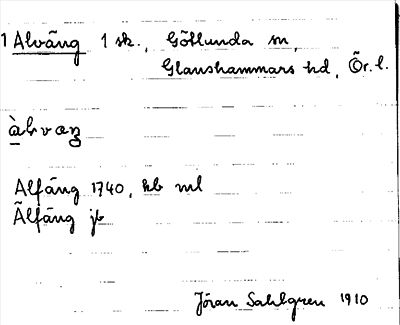 1 Alväng 1 sk., Götlunda sn,
Glanshammars hd, Ör. l.
Alfäng 1740, kb ml
Älfäng jb
Jöran Sahlgren 1910